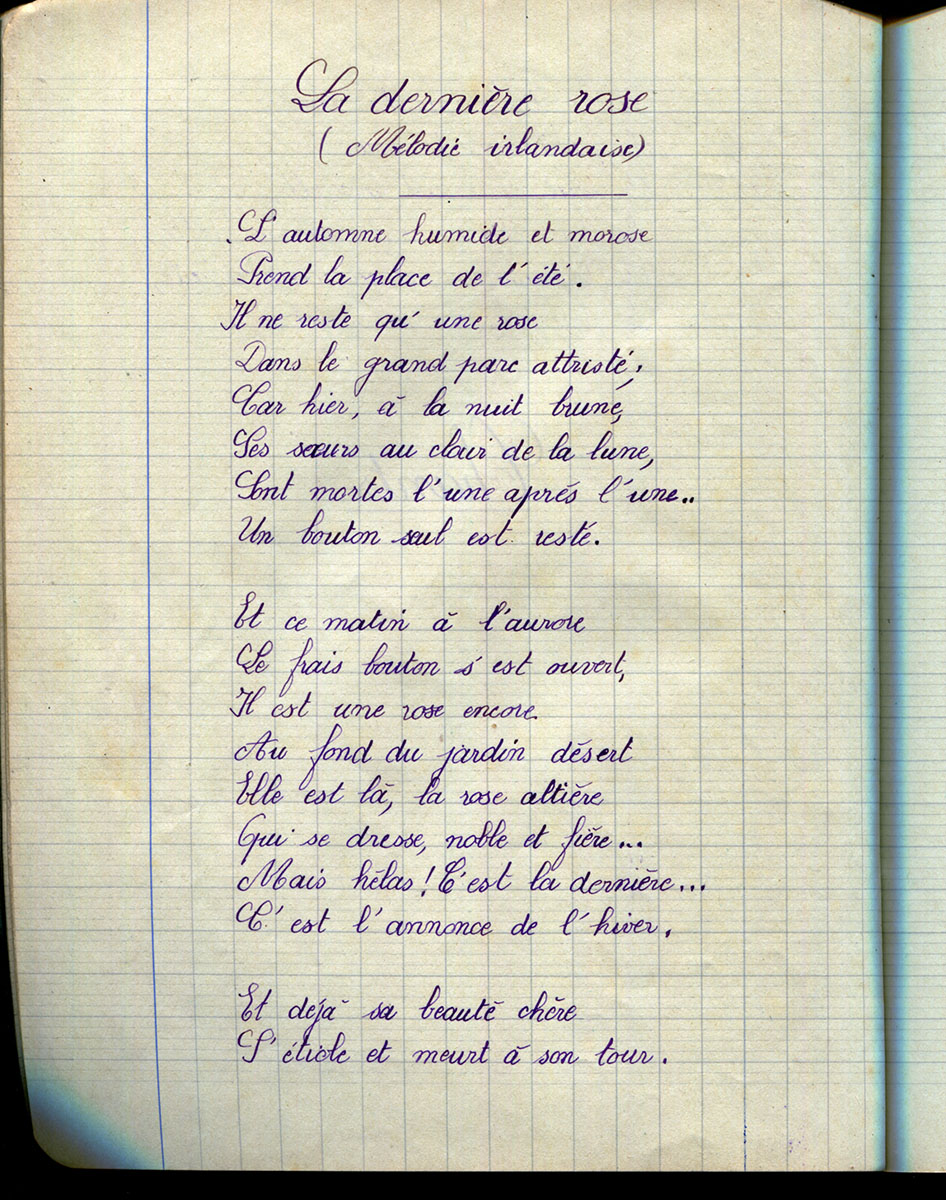 La dernière rose
(Mélodie irlandaise)
L'automne humide et morose
Prend la place de l'été.
Il ne reste qu'une rose
Dans le grand parc attristé,
Car hier, à la nuit brune,
Ses sœurs au clair de la lune,
Sont mortes l'une après l'une..
Un bouton seul est resté.
Et ce matin à l'aurore
Le frais bouton s'est ouvert,
Il est une rose encore
Au fond du jardin désert
Elle est là, la rose altière
Qui se dresse, noble et fière...
Mais hélas! C'est la dernière...
C'est l'annonce de l'hiver.
Et déjà sa beauté chère
S'étiole et meurt à son tour.